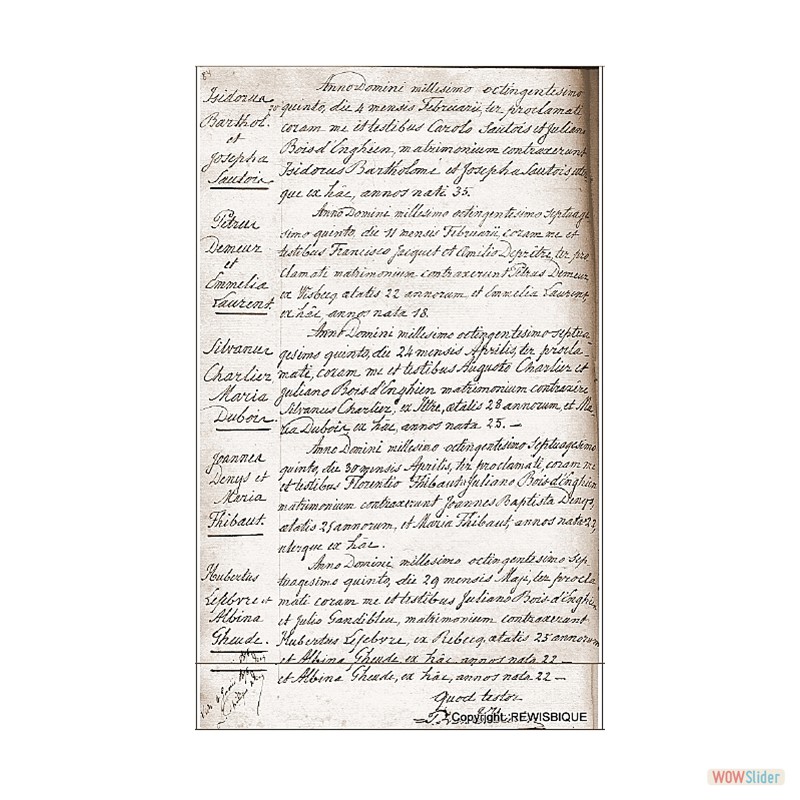 84
Isidorus
Barthol.
et
Josepha
Sautois
Anno Domini millesimo octingentesimo
quinto, die 4 mensis Februarii, ter proclamati
coram me et testibus Carolo Sautois et Juliano
Bois d'Enghien, matrimonium contraxerunt
Isidorus Bartholomé et Josepha Sautois uter-
que ex hâc, annos nati 35.
Petrus
Demeur
et
Emmelia
Laurent
Anno Domini millesimo octingentesimo septuage
simo quinto, die 11 mensis Februarii coram me et
testibus Francisco Jacquet et Amilio Depritre, ter pro
clamati matrimonium contraxerunt Petrus Demeur
ex Wisbecq ætatis 22 annorum et Emmelia Laurent
ex hâc, annos nata 18.
Silvanus
Charlier
Maria
Dubois.
Anno Domini millesimo octingentesimo septua-
gesimo quinto, die 24 mensis Aprilis, ter procla-
mati, coram me et testibus Augusto Charlier et
Juliano Bois d'Enghien matrimonium contraxere
Silvanus Charlier, ex Ittre, ætatis 28 annorum, et Ma
ria Dubois ex hâc, annos nata 25. —
Joannes
Denys et
Maria
Thibaut.
Anno Domini millesimo octingentesimo septuagesimo
quinto, die 30 mensis Aprilis, ter proclamati, coram me
et testibus Florentio Thibaut & Juliano Bois d'Enghien
matrimonium contraxerunt Joannes Baptista Denys,
ætatis 25 annorum, et Maria Thibaut, annos nata 23,
uterque ex hâc.
Hubertus
Lefebvre et
Albina
Gheude.
Anno Domini millesimo octingentesimo sep
tuagesimo quinto, die 29 mensis Maji, ter procla
mati coram me et testibus Juliano Bois d'Enghien
et Julio Gandibleu, matrimonium contraxerunt
Hubertus Lefebvre, ex Rebecq, ætatis 25 annorum
et Albina Gheude, ex hâc, annos nata 22 —
et Albina Gheude, ex hâc, annos nata 22 —
Quod testor
Copyright :REWISBIQUE
WOWSlider